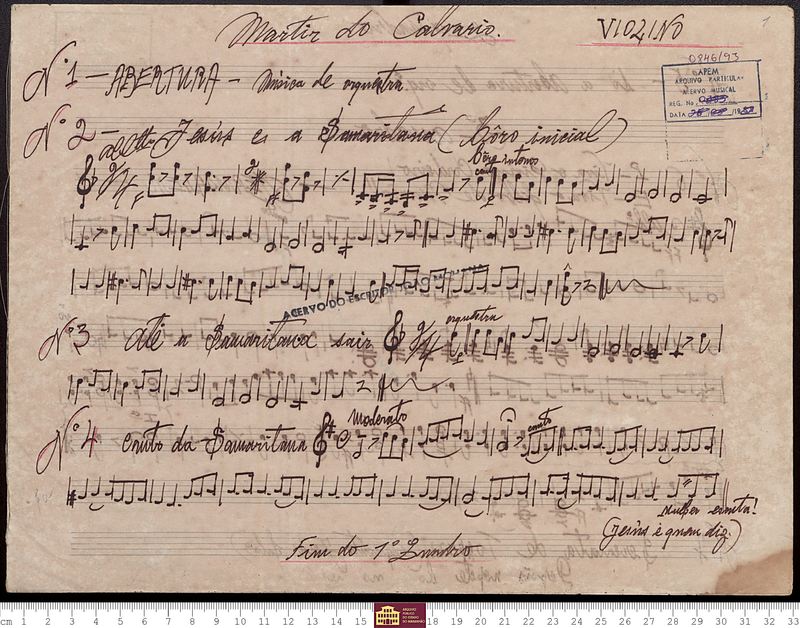 Martir do Calvario.
VIOLINO
1
0846/93
APEM
ARQUIVO PARTICULAR
ACERVO MUSICAL
REG. No
DATA
Nº 1 — ABERTURA — Musica de orquestra
Nº 2 — Jesús es a Samaritana (Côro inicial)
canto
ACERVO DO ESCRITOR
Nº 3 até a Samaritana sair
orquestra
Moderato
canto
Nº 4 canto da Samaritana
Mulher escuta!
(Jesús é quem diz.)
Fim do 1º Quadro
cm 1 2 3 4 5 6 7 8 9 10 11 12 13 14 15 17 18 19 20 21 22 23 24 25 26 27 28 29 30 31 32 33
ARQUIVO
PÚBLICO
DO ESTADO
DO MARANHÃO